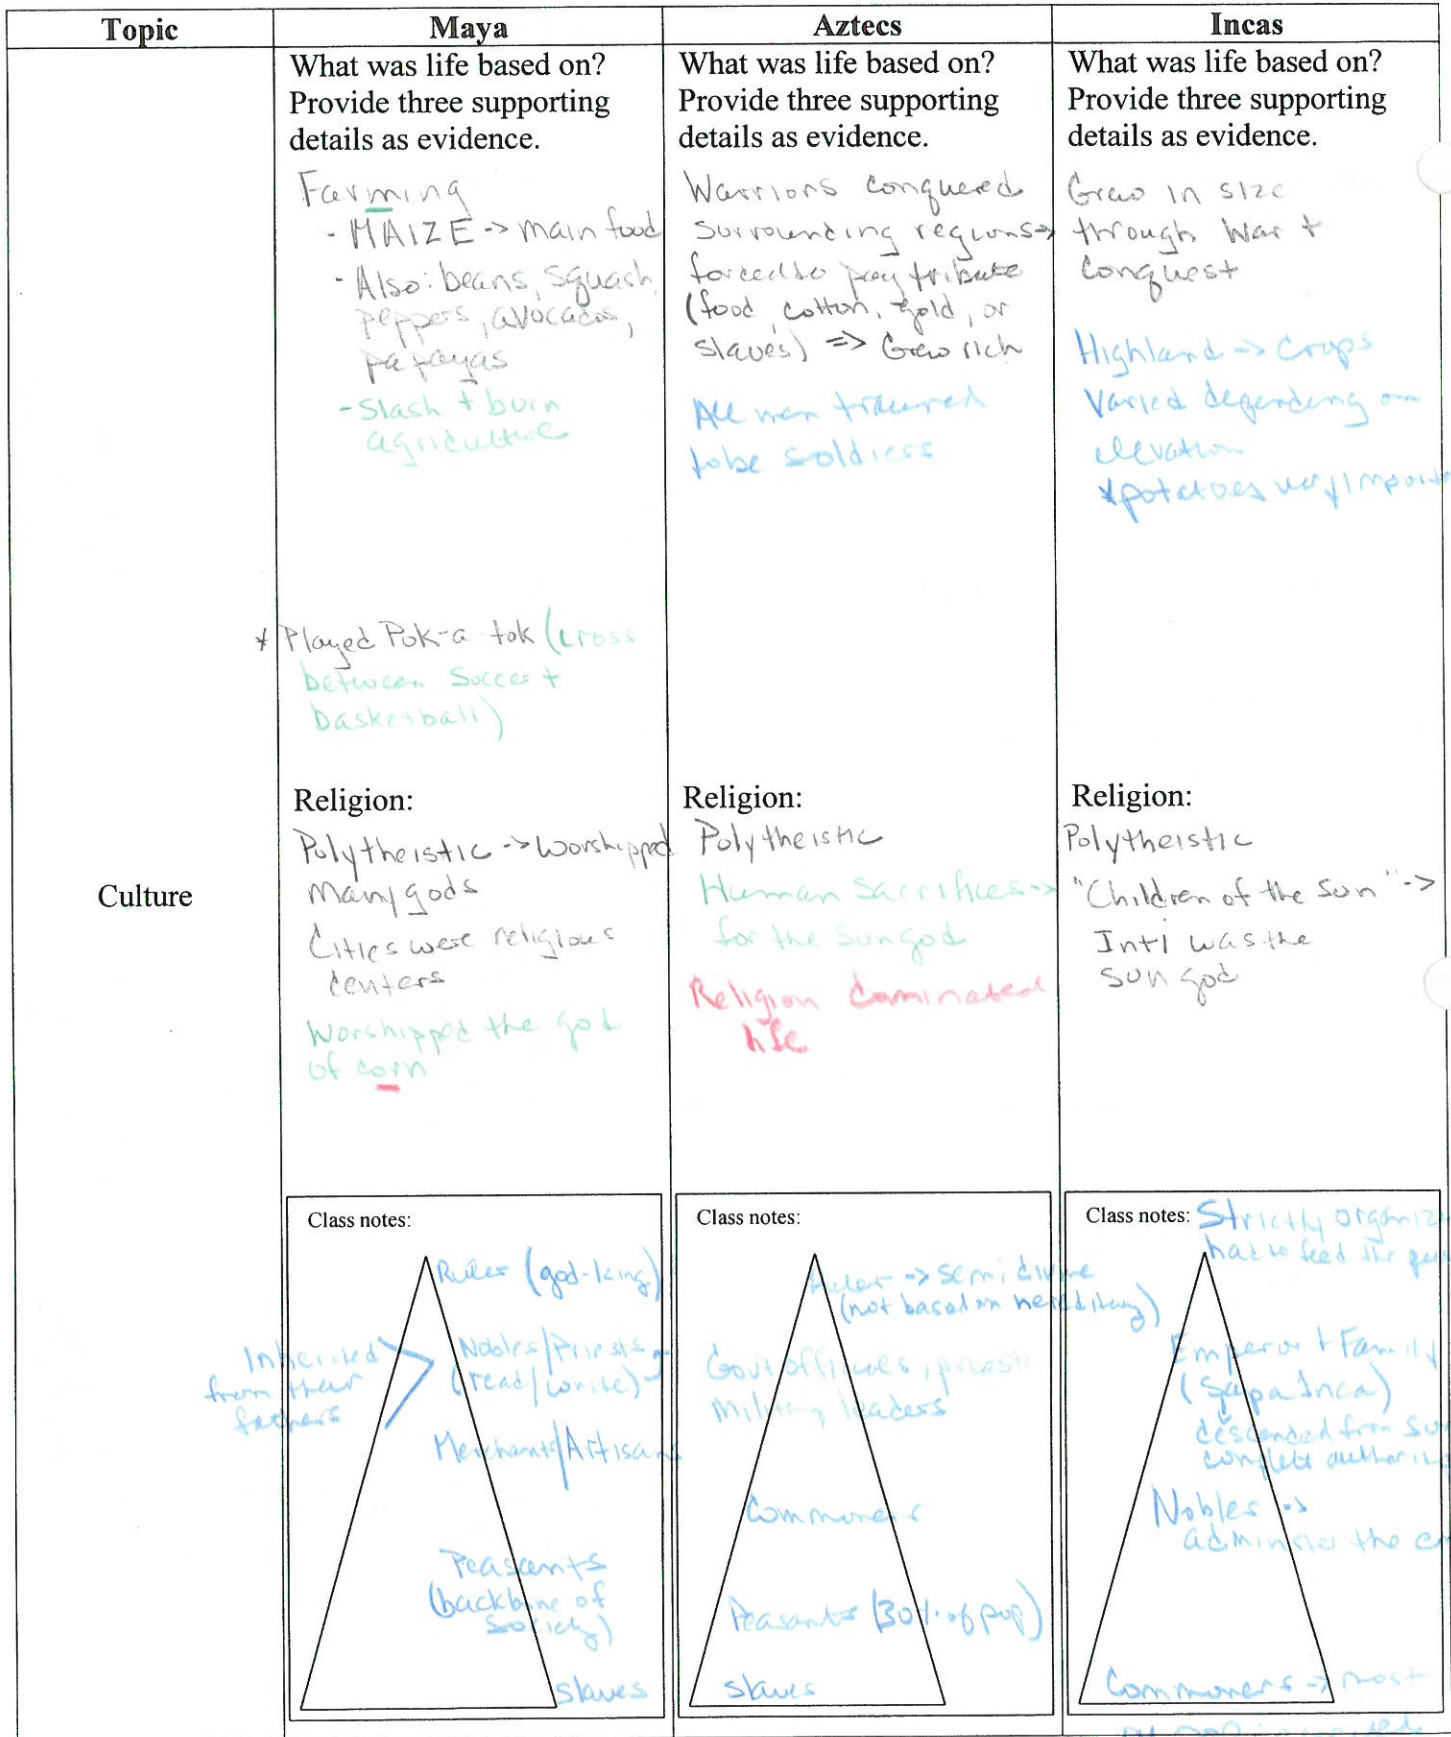 Topic
Maya
Aztecs
Incas
Culture
What was life based on?
Provide three supporting
details as evidence.
Farming
- MAIZE -> main food
- Also: beans, squash,
peppers, avocados,
papayas
- Slash + burn
agriculture
* Played Pok-a-tok (cross
between Soccer +
basketball)
Religion:
Polytheistic -> worshipped
Many gods
Cities were religious
centers
Worshipped the god
of corn
Class notes:
Ruler (god-king)
Nobles/Priests
(read/write)
Inherited
from their
fathers
Merchants/Artisans
Peasants
(backbone of
society)
slaves
What was life based on?
Provide three supporting
details as evidence.
Warriors conquered
surrounding regions ->
forced to pay tribute
(food, cotton, gold, or
slaves) => Grew rich
All men trained
to be soldiers
Religion:
Polytheistic
Human Sacrifices ->
for the sun god
Religion dominated
life
Class notes:
Ruler -> semi divine
(not based on hereditary)
Gov't officials, priests
Military leaders
Commoners
Peasants (30% of pop)
slaves
What was life based on?
Provide three supporting
details as evidence.
Grew in size
through War +
Conquest
Highland -> Crops
Varied depending on
elevation
*potatoes very import
Religion:
Polytheistic
"Children of the Sun" ->
Inti was the
sun god
Class notes: Strictly organiz
had to feed the
Emperor + Family
(Sapa Inca)
descended from Sun
complete authority
Nobles ->
administer the
Commoners -> most